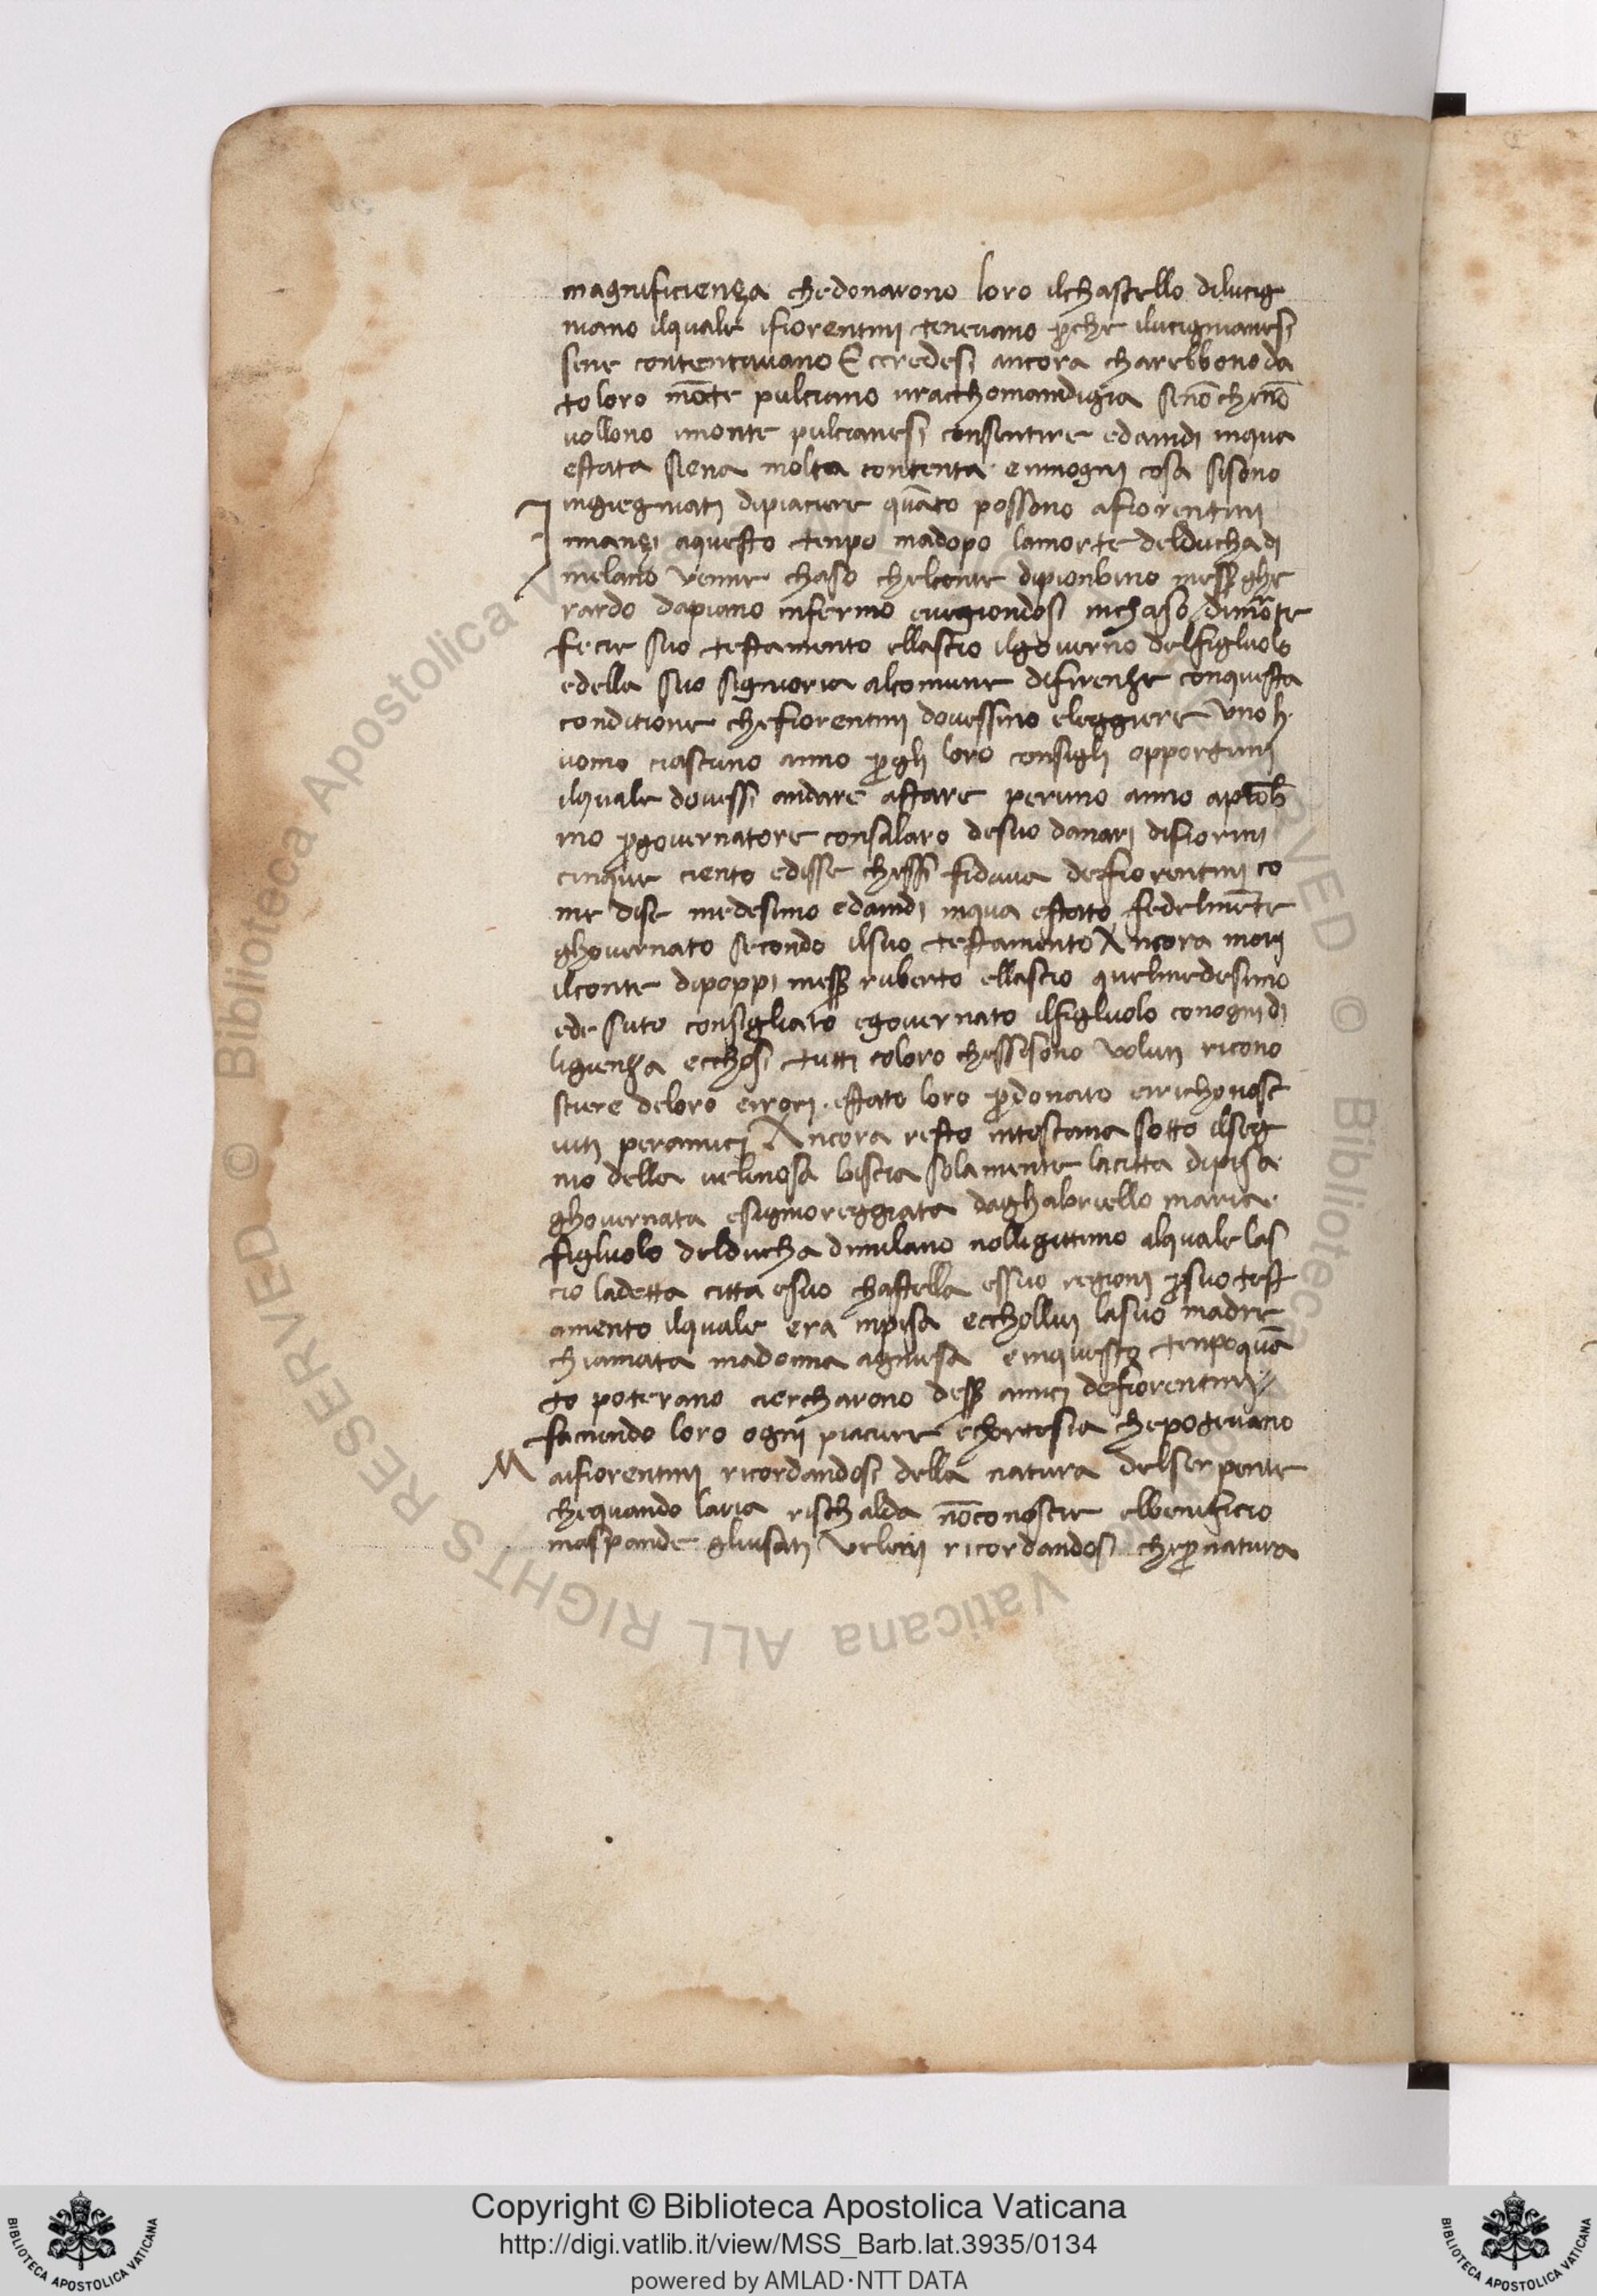 magnificienza chedonarono loro ilchastello dilucig
niano ilquale ifiorentini tenevano p̲che ilucignianesi
sene contentavano E ccredesi ancora charebbono da
to loro mōte pulciano inracchomandigia senō chenō
vollono imonte pulcianesi consentire edaindi inqua
estata siena molta contenta einnogni cosa sisono
ingiegniati dipiaciere quāto possono afiorentini
I nnanzi aquesto tenpo madopo lamorte delduchadi
melano venne chaso chelconte dipionbino mess ghe
rardo dapiano infermo evegiendosi inchaso dimōrte
fecie suo testamento ellascio ilgoverno delfigluolo
edella suo signioria alcomune difirenze conquesta
conditione chefiorentini dovessino eleggiere uno h
uomo ciascuno anno p̲gli loro consigli opportuni
ilquale dovessi andare astare peruno anno apiōb
ino p̲governatore consalaro desuo danari difiorini
cinque ciento edisse chessi fidava defiorentini co
me dise medesimo edaindi inqua estato fedelmēte
ghovernato secondo ilsuo testamento Ancora mori
ilconte dipoppi mess ruberto ellascio quelmedesimo
ede suto consigliato egovernato ilfigluolo conogni di
ligienza ecchosi tutti coloro chessisono voluti ricono
sciere deloro errori. estato loro p̲donato errichonosc
iuti peramici Ancora resto intoscana sotto ilseg
nio della velenosa biscia solamente lacitta dipisa
ghovernata esignioreggiata daghabriello maria
figluolo delducha dimilano nolligittimo alquale las
cio ladetta citta esuo chastella essuo regioni p̲suo test
amento ilquale era inpisa ecchollui lasuo madre
chiamata madonna agniesa einquesto tenpo quā
to poterano ciercharono dess amici defiorentini
faciendo loro ogni piaciere echortesia chepotevano
M aifiorentini ricordandosi della natura delserpente
chequando laria rischalda nōconoscie elbenificio
maspande gliusati veleni ricordandosi chep̲natura
Copyright © Biblioteca Apostolica Vaticana
http://digi.vatlib.it/view/MSS_Barb.lat.3935/0134
powered by AMLAD·NTT DATA